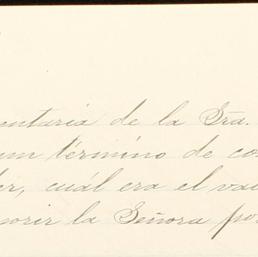 entaria de la Sra.
un término de co
er, cuál era el va
morir la Señora po